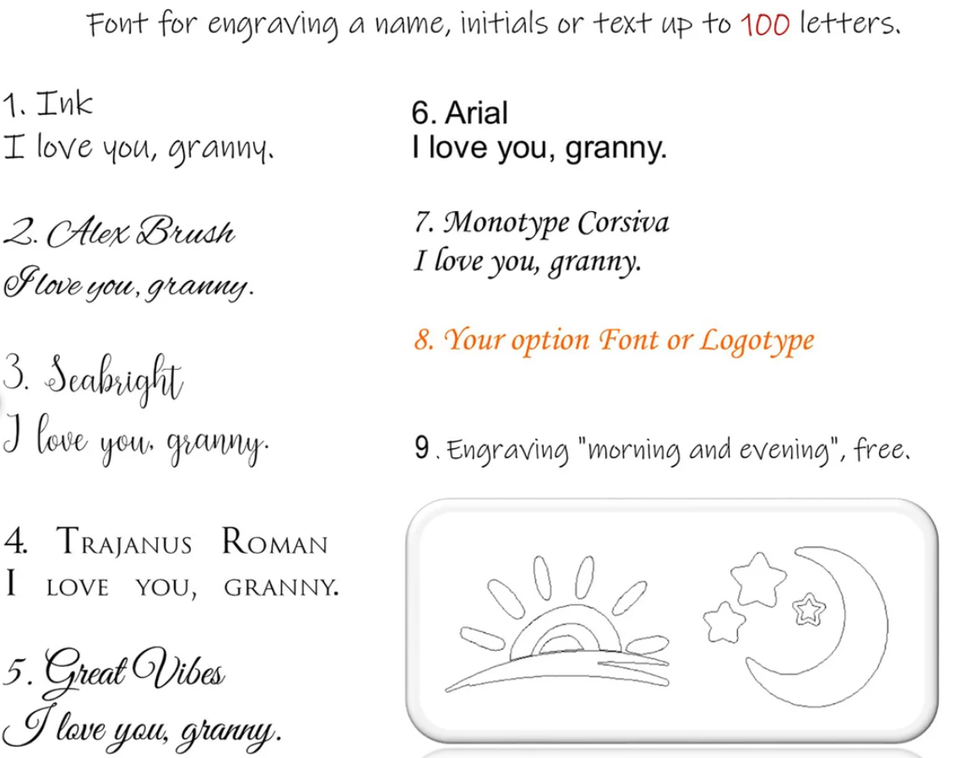 Font for engraving a name, initials or text up to 100 letters.
1. Ink
I love you, granny.
2. Alex Brush
I love you, granny.
3. Seabright
I love you, granny.
4. TRAJANUS ROMAN
I LOVE YOU, GRANNY.
5. Great Vibes
I love you, granny.
6. Arial
I love you, granny.
7. Monotype Corsiva
I love you, granny.
8. Your option Font or Logotype
9. Engraving "morning and evening", free.